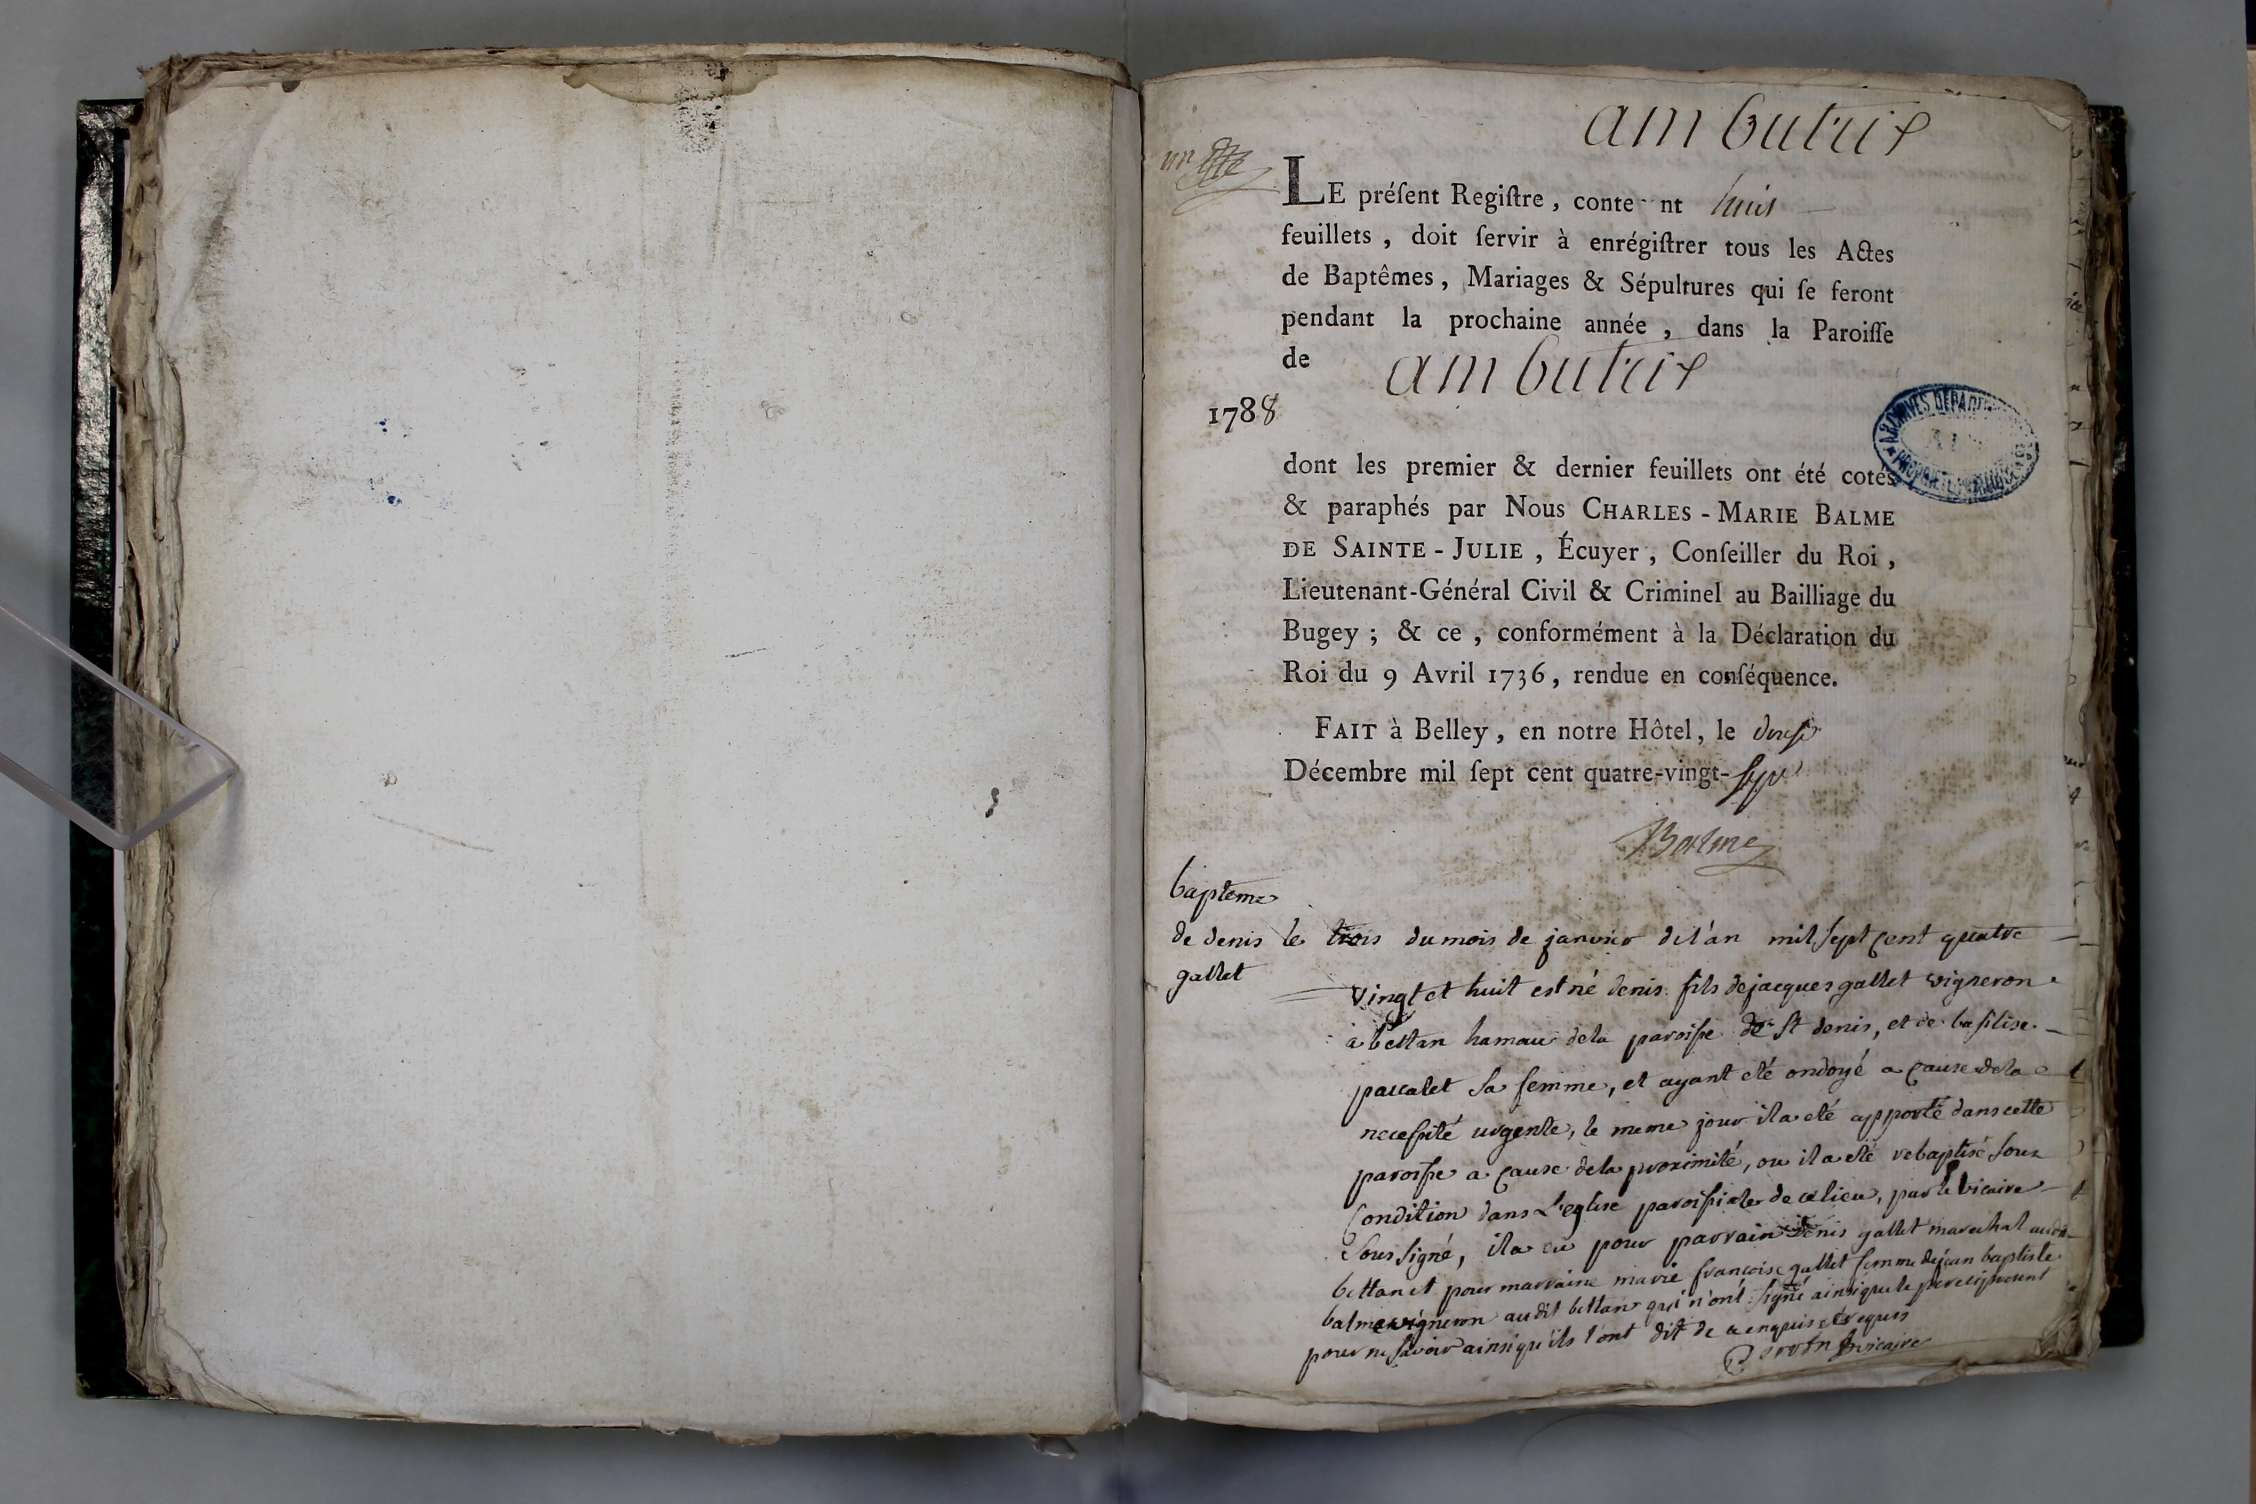 ambutrix
un
LE préſent Regiſtre, conte nt huit
feuillets, doit ſervir à enrégiſtrer tous les Actes
de Baptêmes, Mariages & Sépultures qui ſe feront
pendant la prochaine année, dans la Paroiſſe
de ambutrix
1788
dont les premier & dernier feuillets ont été cotés
& paraphés par Nous CHARLES-MARIE BALME
DE SAINTE-JULIE, Écuyer, Conſeiller du Roi,
Lieutenant-Général Civil & Criminel au Bailliage du
Bugey; & ce, conformément à la Déclaration du
Roi du 9 Avril 1736, rendue en conſéquence.
FAIT à Belley, en notre Hôtel, le douze
Décembre mil ſept cent quatre-vingt-sept
Balme
bapteme
de denis
gallet
le trois du mois de janvier de l'an mil sept cent quatre
vingt et huit est né denis fils de jacques gallet vigneron
a bettan hamau de la paroisse de st denis, et de basilise
pascalet sa femme, et ayant eté ondoyé a cause de la
necessité urgente, le meme jour il a eté apporté dans cette
paroisse a cause de la proximité, ou il a eté rebaptisé sous
condition dans L'eglise paroissiale de ce lieu, par le vicaire
sous signé, il a eu pour parrain denis gallet marechal audit
bettan et pour marraine marie françoise gallet femme de jean baptiste
balme vigneron audit bettan qui n'ont signé ainsi que le pere cy present
pour ne savoir ainsi qu'ils l'ont dit de ce enquis et requis
vicaire
ARCHIVES DEPARTEMENTALES
PROPRIETE PUBLIQUE